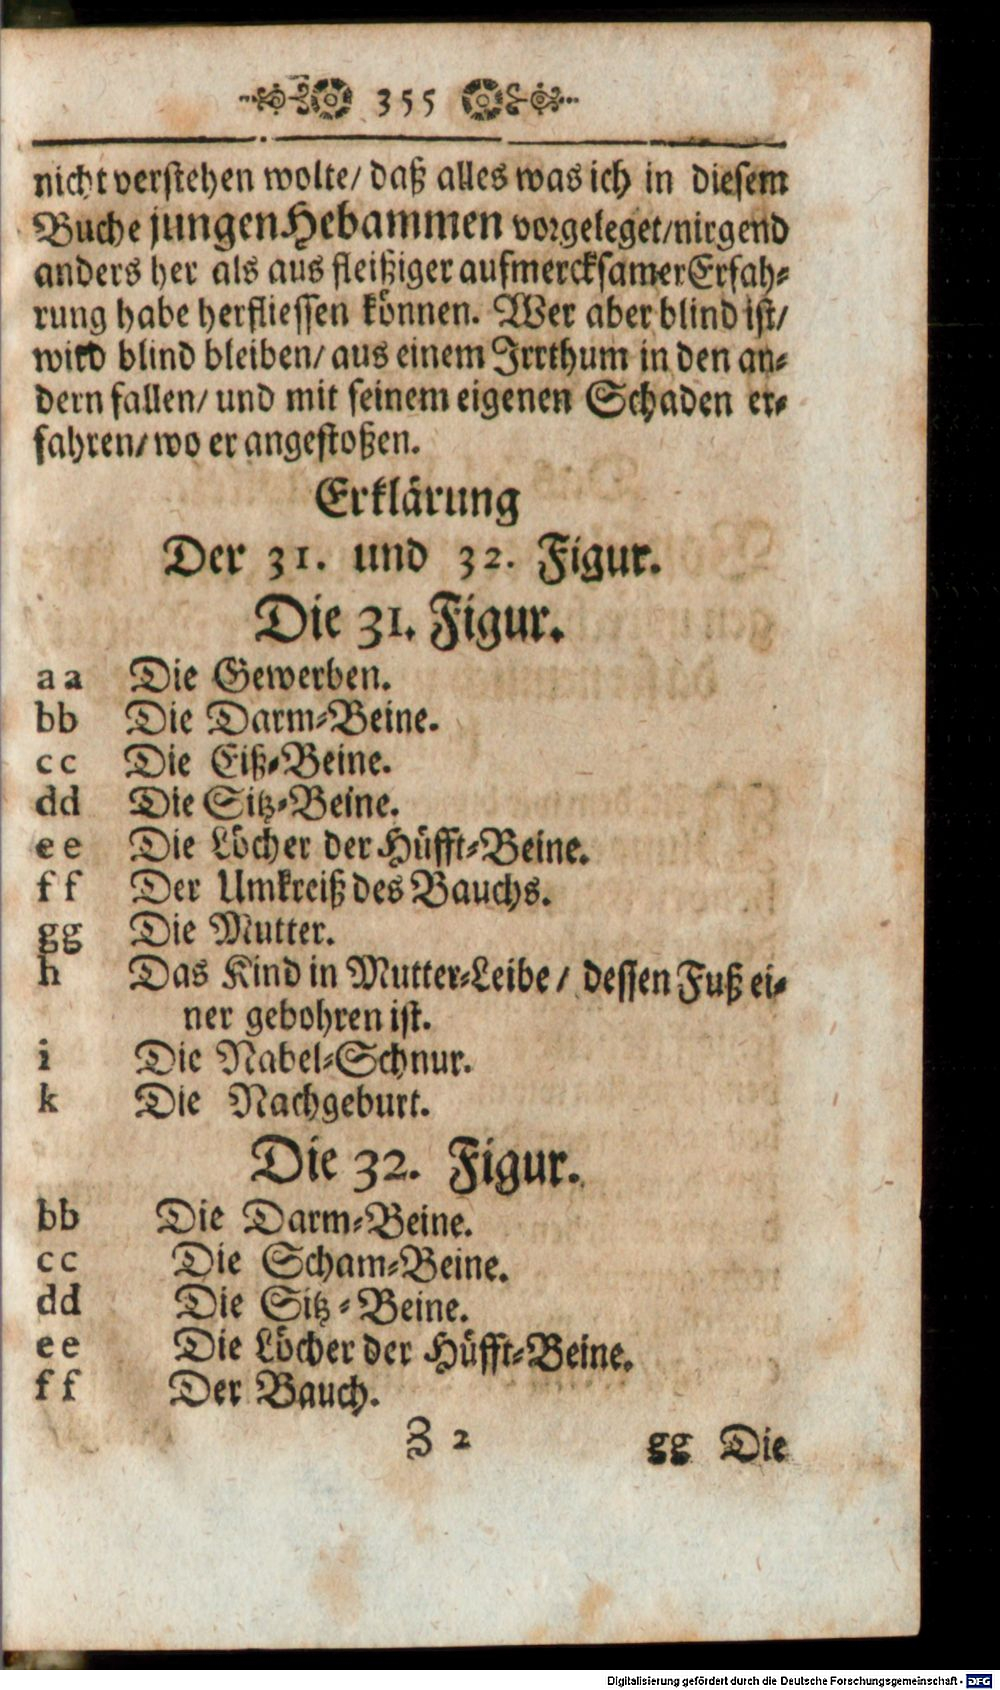 355
nicht verstehen wolte/ daß alles was ich in diesem
Buche jungen Hebammen vorgeleget/nirgend
anders her als aus fleißiger aufmercksamer Erfah-
rung habe herfliessen können. Wer aber blind ist/
wird blind bleiben/ aus einem Irrthum in den an-
dern fallen/ und mit seinem eigenen Schaden er-
fahren/ wo er angestoßen.
Erklärung
Der 31. und 32. Figur.
Die 31. Figur.
a a Die Gewerben.
bb Die Darm-Beine.
c c Die Eiß-Beine.
dd Die Sitz-Beine.
e e Die Löcher der Hüfft-Beine.
f f Der Umkreiß des Bauchs.
gg Die Mutter.
h Das Kind in Mutter-Leibe/ dessen Fuß ei-
ner gebohren ist.
i Die Nabel-Schnur.
k Die Nachgeburt.
Die 32. Figur.
bb Die Darm-Beine.
c c Die Scham-Beine.
dd Die Sitz-Beine.
e e Die Löcher der Hüfft-Beine.
f f Der Bauch.
Z 2 gg Die
Digitalisierung gefördert durch die Deutsche Forschungsgemeinschaft - DFG